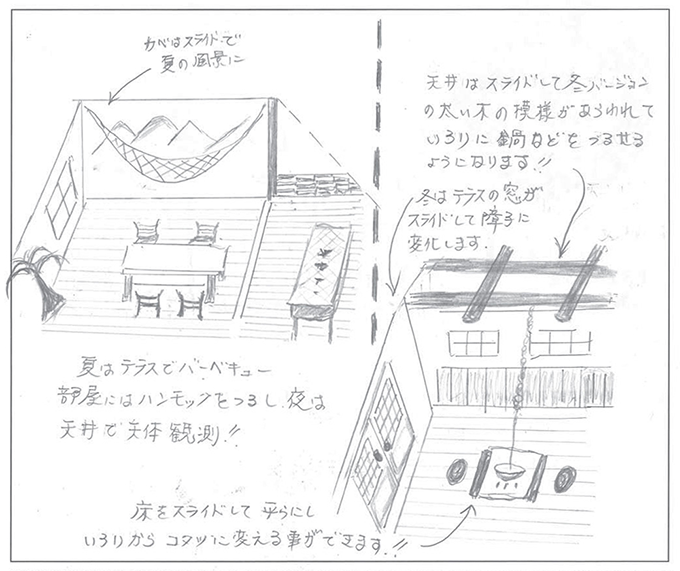 カベはスライドで
夏の風景に
夏はテラスでバーベキュー
部屋にはハンモックをつるし、夜は
天井で天体観測!!
天井はスライドして冬バージョン
の太い木の模様があらわれて
いろりに鍋などをつるせる
ようになります!!
冬はテラスの窓が
スライドして障子に
変化します.
床をスライドして平らにし
いろりからコタツに変える事ができます!!